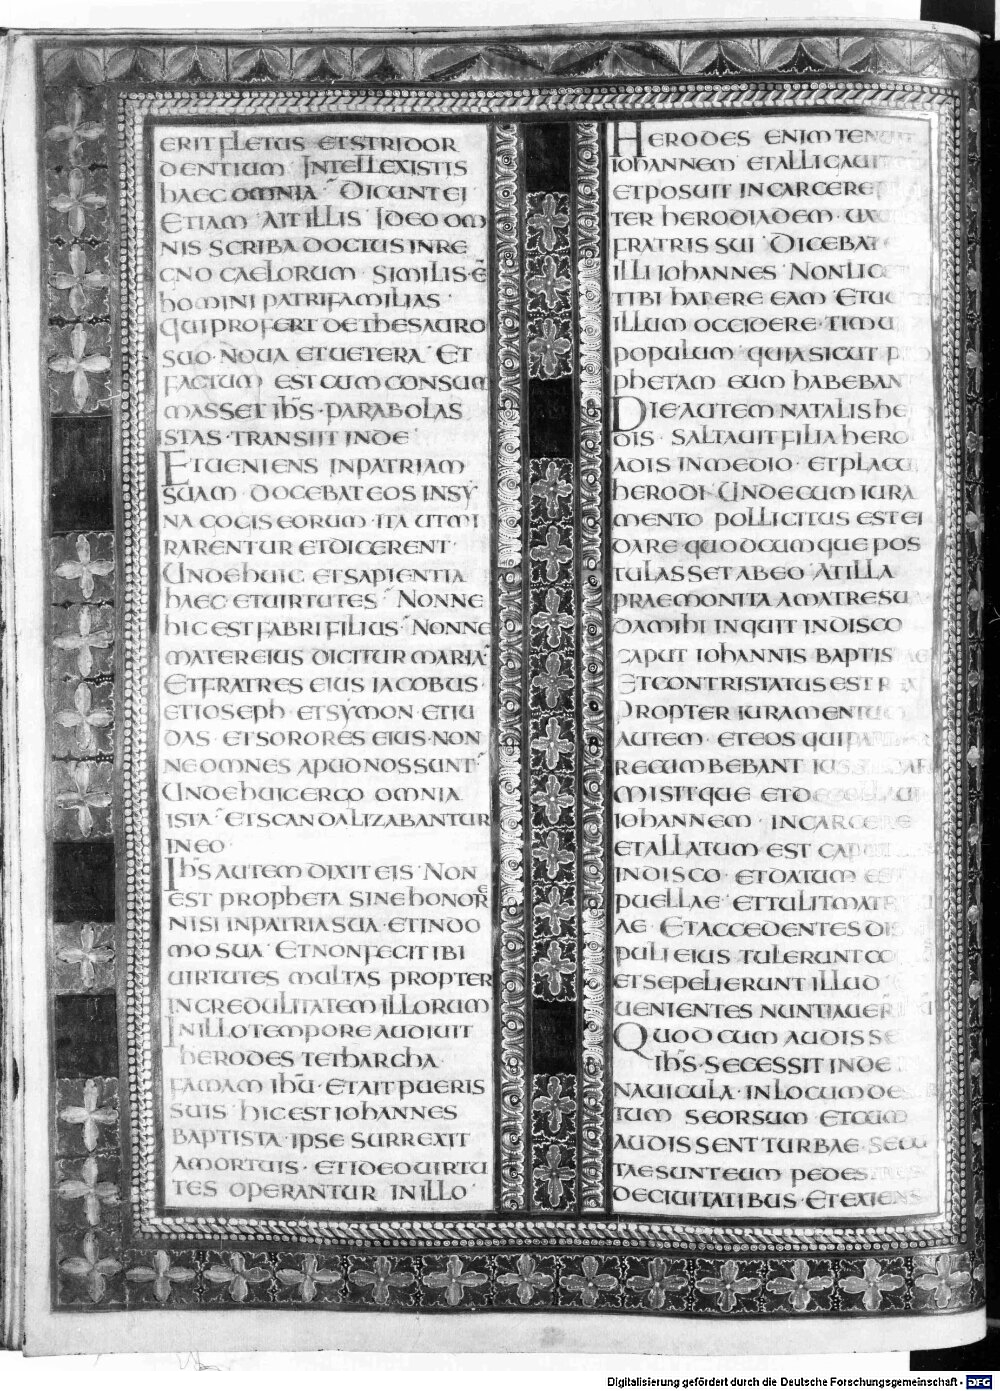 ERIT FLETUS ET STRIDOR
DENTIUM · INTELLEXISTIS
HAEC OMNIA · DICUNT EI
ETIAM · AIT ILLIS · IDEO OM
NIS SCRIBA DOCTUS IN RE
GNO CAELORUM · SIMILIS · Ē
HOMINI PATRIFAMILIAS ·
QUI PROFERT DE THESAURO
SUO · NOUA ET UETERA · ET
FACTUM EST CUM CONSUM
MASSET IHS · PARABOLAS
ISTAS · TRANSIIT INDE ·
ET UENIENS IN PATRIAM
SUAM · DOCEBAT EOS IN SY
NAGOGIS EORUM · ITA UT MI
RARENTUR ET DICERENT ·
UNDE HUIC ET SAPIENTIA
HAEC ET UIRTUTES · NONNE
HIC EST FABRI FILIUS · NONNE
MATER EIUS DICITUR MARIA
ET FRATRES EIUS IACOBUS ·
ET IOSEPH · ET SYMON · ET IU
DAS · ET SORORES EIUS · NON
NE OMNES APUD NOS SUNT
UNDE HUIC ERGO OMNIA
ISTA · ET SCANDALIZABANTUR
IN EO ·
IHS AUTEM DIXIT EIS · NON
EST PROPHETA SINE HONORE
NISI IN PATRIA SUA · ET IN DO
MO SUA · ET NON FECIT IBI
UIRTUTES MULTAS PROPTER
INCREDULITATEM ILLORUM
IN ILLO TEMPORE AUDIUIT
HERODES TETHARCHA ·
FAMAM IHU · ET AIT PUERIS
SUIS · HIC EST IOHANNES
BAPTISTA · IPSE SURREXIT
A MORTUIS · ET IDEO UIRTU
TES OPERANTUR IN ILLO ·
HERODES ENIM TENUIT
IOHANNEM ET ALLIGAUIT
ET POSUIT IN CARCERE
TER HERODIADEM · UX
FRATRIS SUI · DICEBAT
ILLI IOHANNES · NON LICE
TIBI HABERE EAM · ET
ILLUM OCCIDERE · TIMU
POPULUM · QUIA SICUT PRO
PHETAM EUM HABEBANT
DIE AUTEM NATALIS HE
DIS · SALTAUIT FILIA HERO
ADIS IN MEDIO · ET PLACU
HERODI · UNDE CUM IURA
MENTO POLLICITUS EST EI
DARE QUODCUMQUE POS
TULASSET AB EO · AT ILLA
PRAEMONITA A MATRE SUA ·
DA MIHI INQUIT IN DISCO
CAPUT IOHANNIS BAPTIS
ET CONTRISTATUS EST REX
PROPTER IURAMENTU
AUTEM · ET EOS QUI PARITER
RECUMBEBANT IUSSIT DARI
MISITQUE ET DECOLLAUIT
IOHANNEM · IN CARCERE
ET ALLATUM EST CAPUT
IN DISCO · ET DATUM EST
PUELLAE · ET TULIT MATR
AE · ET ACCEDENTES DIS
PULI EIUS TULERUNT CO
ET SEPELIERUNT ILLUD
UENIENTES NUNTIAUER
QUOD CUM AUDISSE
IHS · SECESSIT INDE
NAUICULA · IN LOCUM DE
TUM SEORSUM · ET CUM
AUDISSENT TURBAE · SECU
TAE SUNT EUM PEDES
DE CIUITATIBUS · ET EXIENS
Digitalisierung gefördert durch die Deutsche Forschungsgemeinschaft - DFG